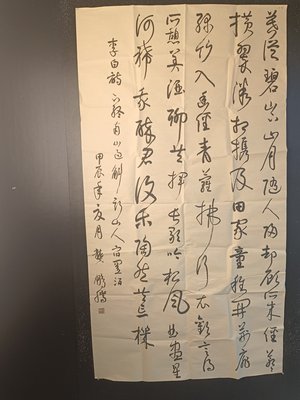 暮從碧山下山月隨人歸却顧所来徑蒼蒼
橫翠微相攜及田家童稚開荆扉
綠竹入幽徑青蘿拂行衣歡言得
所憩美酒聊共揮長歌吟松風曲盡星
河稀我醉君復乐陶然共忘機
李白詩 下終南山过斛斯山人宿置酒
甲辰年夏月